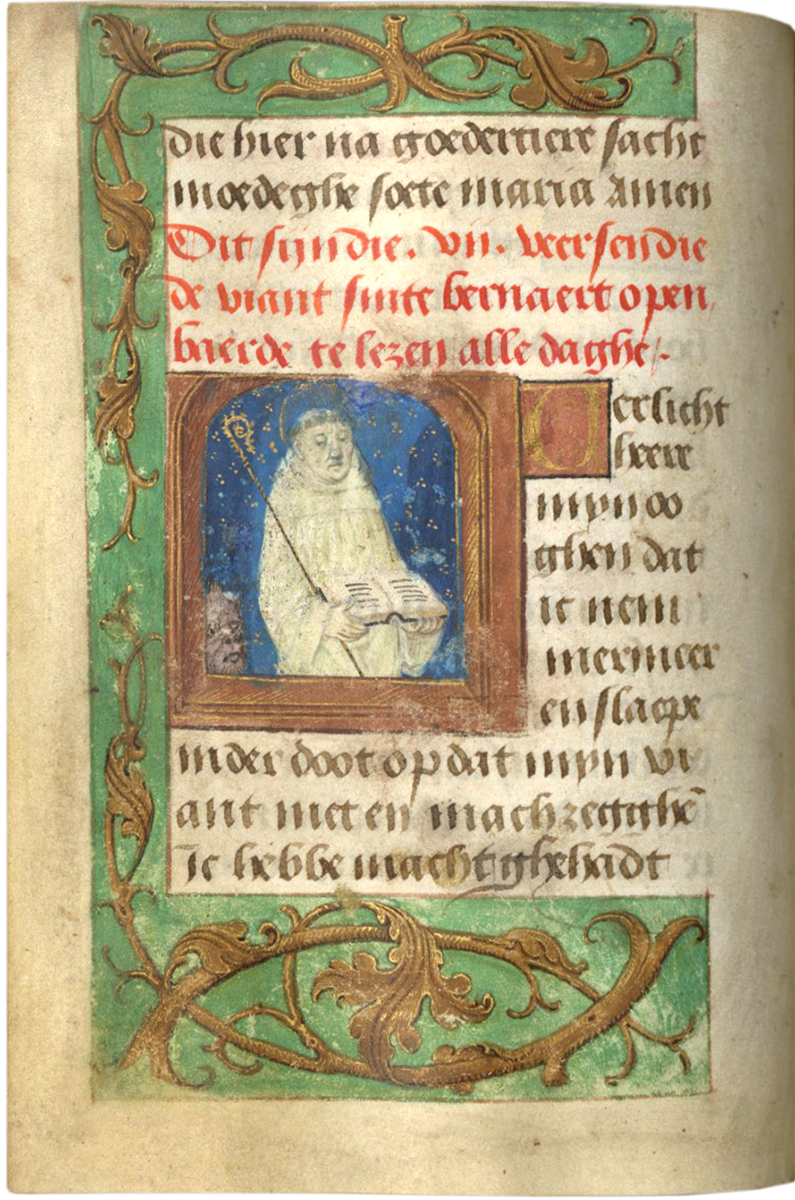 die hier na goedertiere sacht
moedeghe soete maria Amen
Dit sijn die . vii . veersen die
de viant sinte bernaert open
baerde te lezen alle daghe .
Verlicht
heere
myn oo
ghen dat
ic nem
mermeer
en slaepe
inder doot op dat myn vi
ant niet en mach zegghē
ic hebbe macht ghehadt